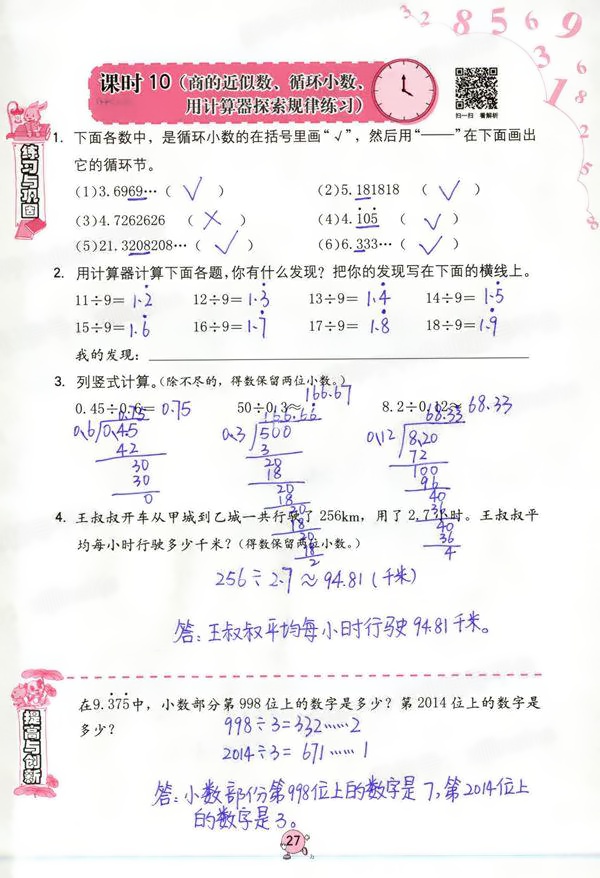 课时10(商的近似数、循环小数、
用计算器探索规律练习)
扫一扫 看解析
练习与巩固
1. 下面各数中，是循环小数的在括号里画“√”，然后用“——”在下面画出
它的循环节。
(1)3.6969…( √ ) (2)5.181818 ( √ )
(3)4.7262626 ( × ) (4)4.1̇05̇ ( √ )
(5)21.3208208…( √ ) (6)6.333…( √ )
2. 用计算器计算下面各题,你有什么发现？把你的发现写在下面的横线上。
11÷9= 1.2̇ 12÷9= 1.3̇ 13÷9= 1.4̇ 14÷9= 1.5̇
15÷9= 1.6̇ 16÷9= 1.7̇ 17÷9= 1.8̇ 18÷9= 1.9̇
我的发现：
3. 列竖式计算。(除不尽的，得数保留两位小数。)
0.45÷0.6= 0.75 50÷0.3≈ 166.67 8.2÷0.12≈ 68.33
0.75 166.66 68.33
0.6 0.45 0.3 500 0.12 8.20
42 3 72
30 20 100
30 18 96
0 20 40
18 36
20 40
18 36
20 4
18
2
4. 王叔叔开车从甲城到乙城一共行驶了256km，用了2.7小时。王叔叔平
均每小时行驶多少千米？(得数保留两位小数。)
256÷2.7≈94.81(千米)
答：王叔叔平均每小时行驶94.81千米。
提高与创新
在9.3̇75̇中，小数部分第998位上的数字是多少？第2014位上的数字是
多少？
998÷3=332……2
2014÷3=671……1
答：小数部份第998位上的数字是7,第2014位上
的数字是3。
27